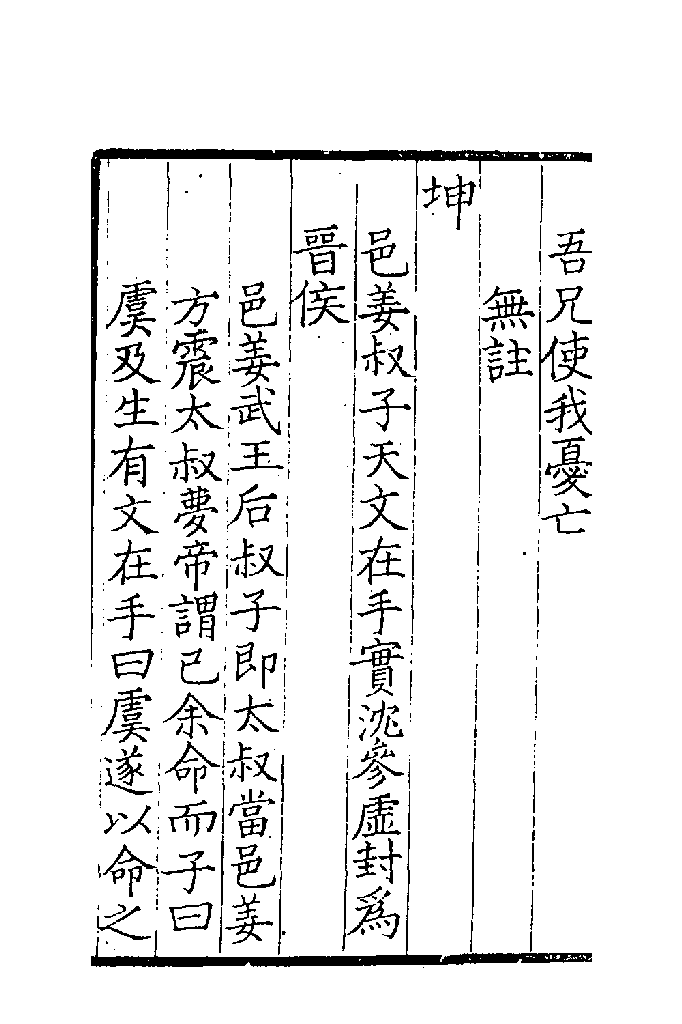 吾兄使我憂亡
無註
坤
邑姜叔子天文在手實沈參虛封爲
晉侯
邑姜武王后叔子即太叔當邑姜
方震太叔夢帝謂已余命而子曰
虞及生有文在手曰虞遂以命之